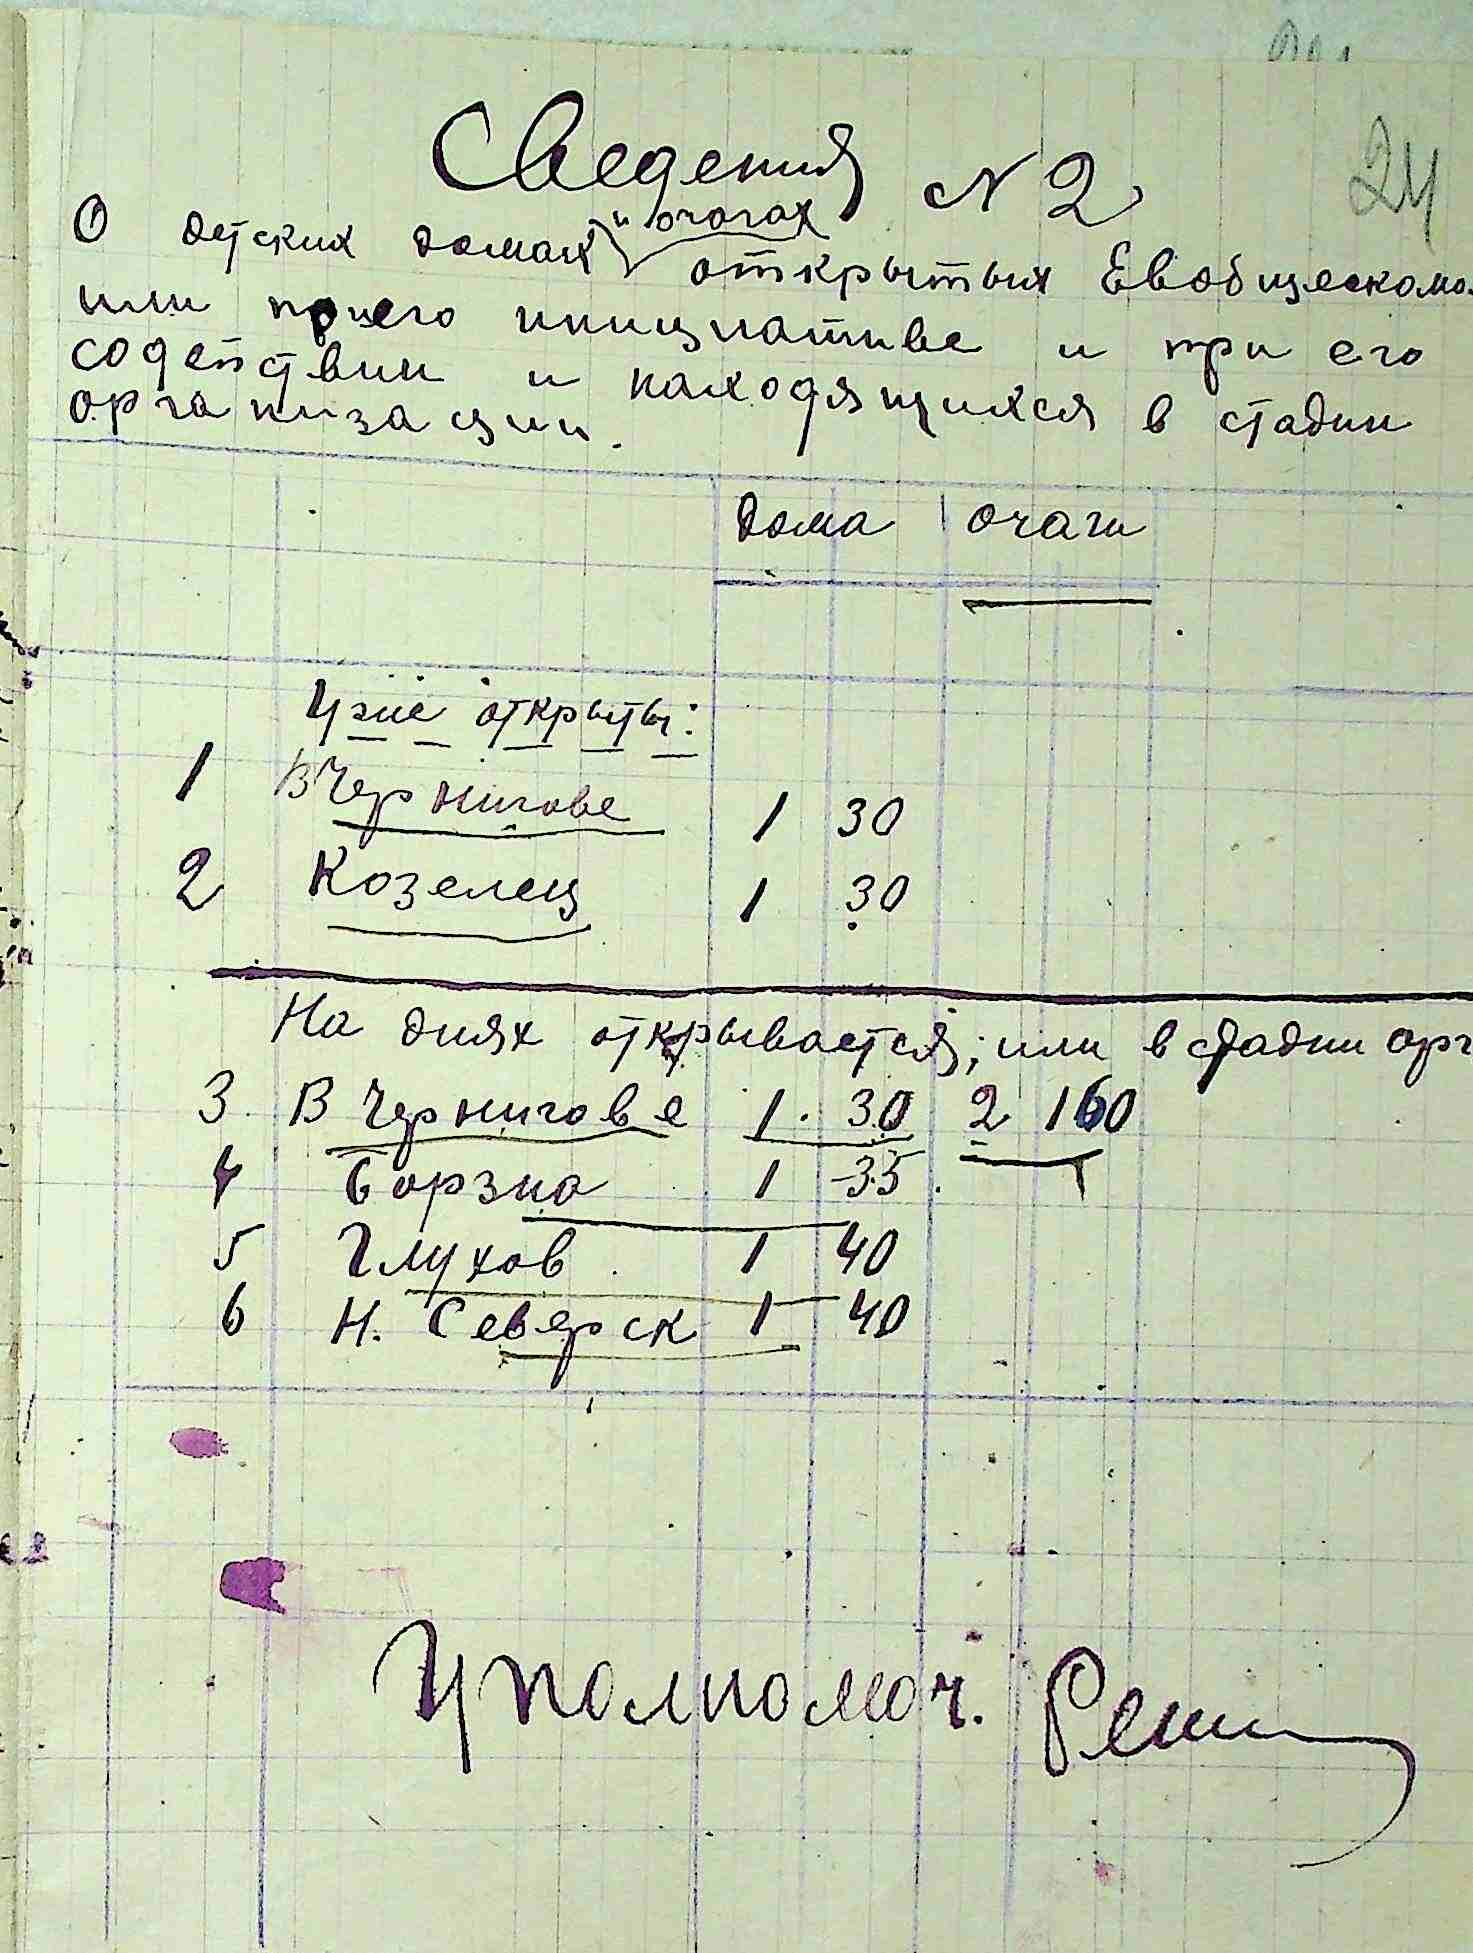 24
Сведения № 2
О детских домах и очагах открытых Евобщескомом
или по его инициативе и при его
содействии и находящихся в стадии
организации.
дома очаги
Уже открыты:
1 В Чернигове 1 30
2 Козелец 1 30
На днях открывается, или в стадии орг
3 В Чернигове 1 30 2 160
4 Борзна 1 35
5 Глухов 1 40
6 Н. Северск 1 40
Уполномоч.